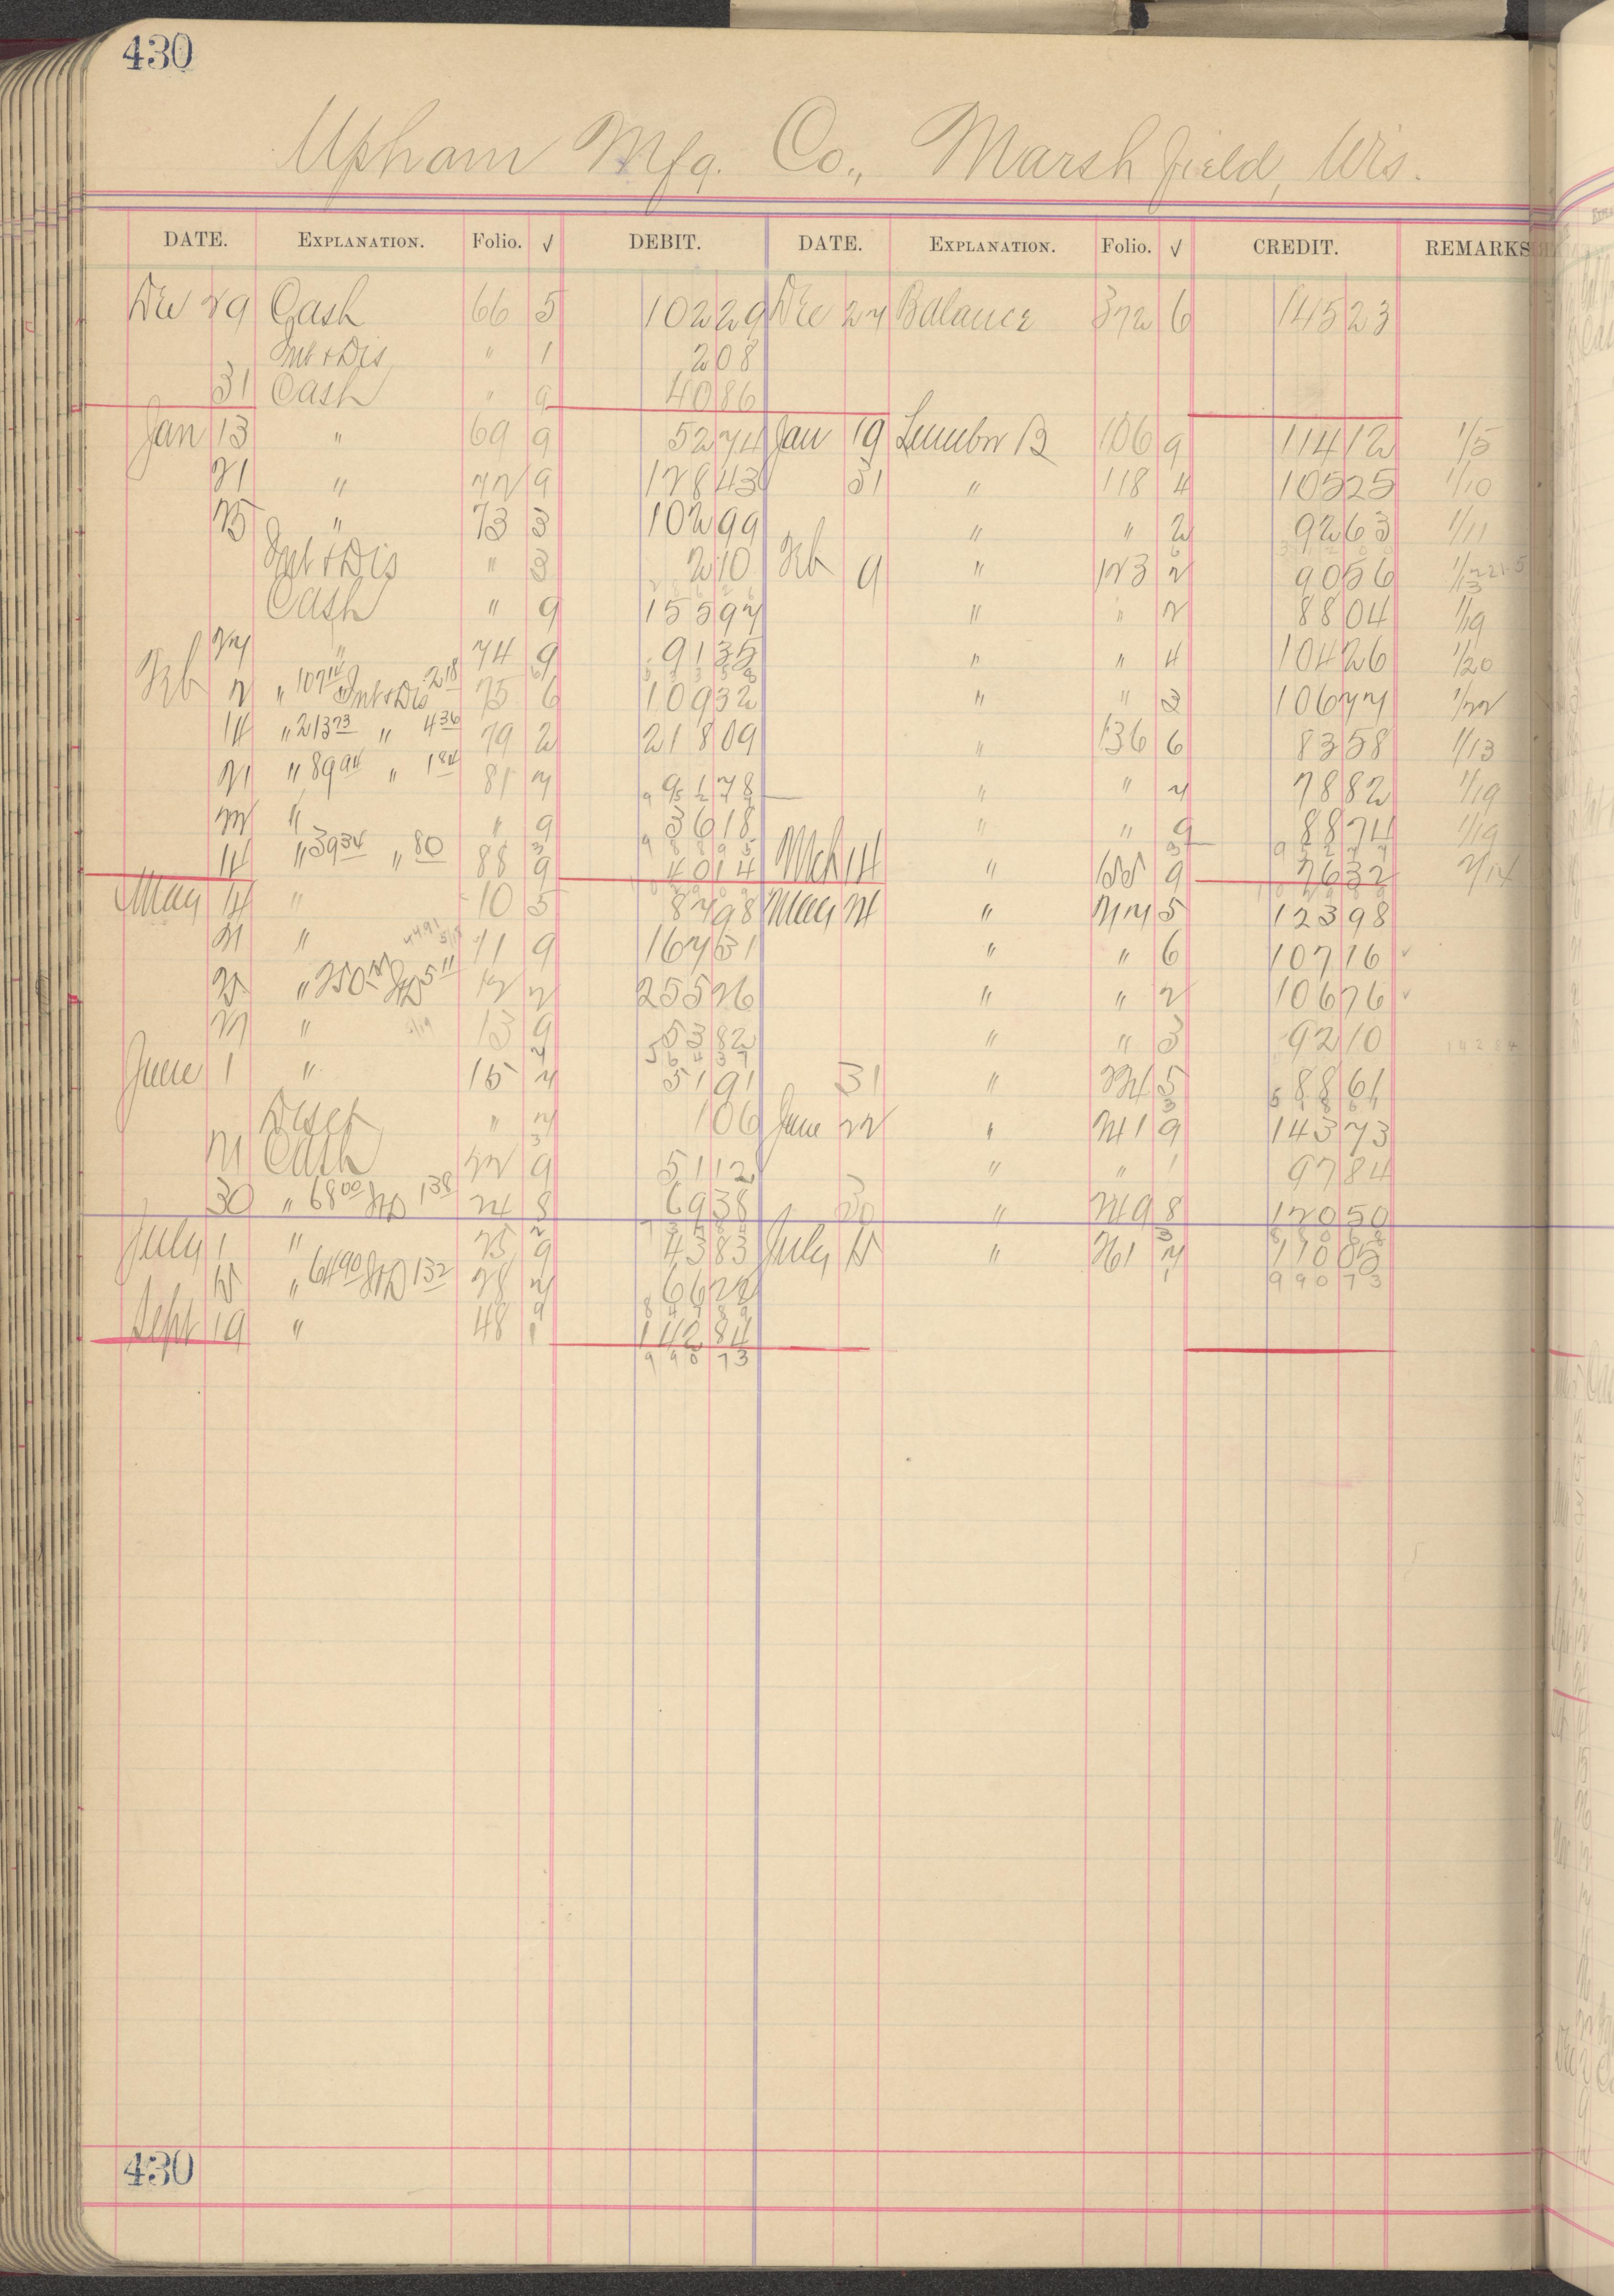 430
Upham Mfg. Co., Marshfield, Wis.
DATE. EXPLANATION. Folio. √ DEBIT. DATE. EXPLANATION. Folio. √ CREDIT. REMARKS
Dec 29 Cash 66 5 102 29 Dec 27 Balance 372 6 145 23
Int & Dis " 1 2 08
31 Cash " 9 40 86
Jan 13 " 69 9 52 74 Jan 19 Lumber B 106 9 114 12 1/5
21 " 72 9 128 43 31 " 118 4 105 25 1/10
25 " 73 3 102 99 " " 2 92 63 1/11
Int & Dis " 3 2 10 Feb 9 " 123 2 90 56
Cash " 9 155 97 " " 2 88 04 1/19
27 " 74 9 91 35 " " 4 104 26 1/20
Feb 2 " 107 14 Int & Dis 2 18 75 6 109 32 " " 3 106 77 1/22
14 " 213 73 " 4 36 79 2 218 09 " 136 6 83 58 1/13
21 " 89 94 " 1 84 81 7 91 78 " " 7 78 82 1/19
22 " " 9 36 18 " " 9 88 74 1/19
14 " 39 34 " 80 88 9 40 14 Mch 14 " 155 9 76 32 2/14
May 14 " 10 5 87 98 May 24 " 227 5 123 98
21 " 11 9 167 31 " " 6 107 16
25 " 250 15 5 11 12 2 255 26 " " 2 106 76
27 " 13 9 53 82 " " 3 92 10
5 6 4 3 7
June 1 " 15 7 51 91 31 " 234 5 88 61
Disct " 7 1 06 June 22 " 241 9 143 73
21 Cash 22 9 51 12 " " 1 97 84
30 " 68 00 1 38 24 8 69 38 30 " 249 8 120 50
July 1 " 25 9 43 83 July 15 " 261 7 110 05
15 " 64 90 1 32 28 7 66 22 9 9 0 7 3
8 4 7 8 9
Sept 19 " 48 1 142 84
9 9 0 7 3
430